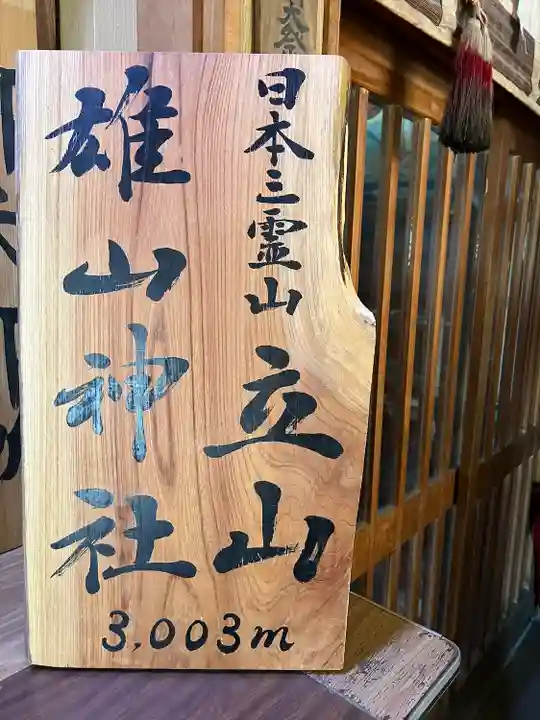 日本三霊山
立山
雄山神社
3,003m
大祭